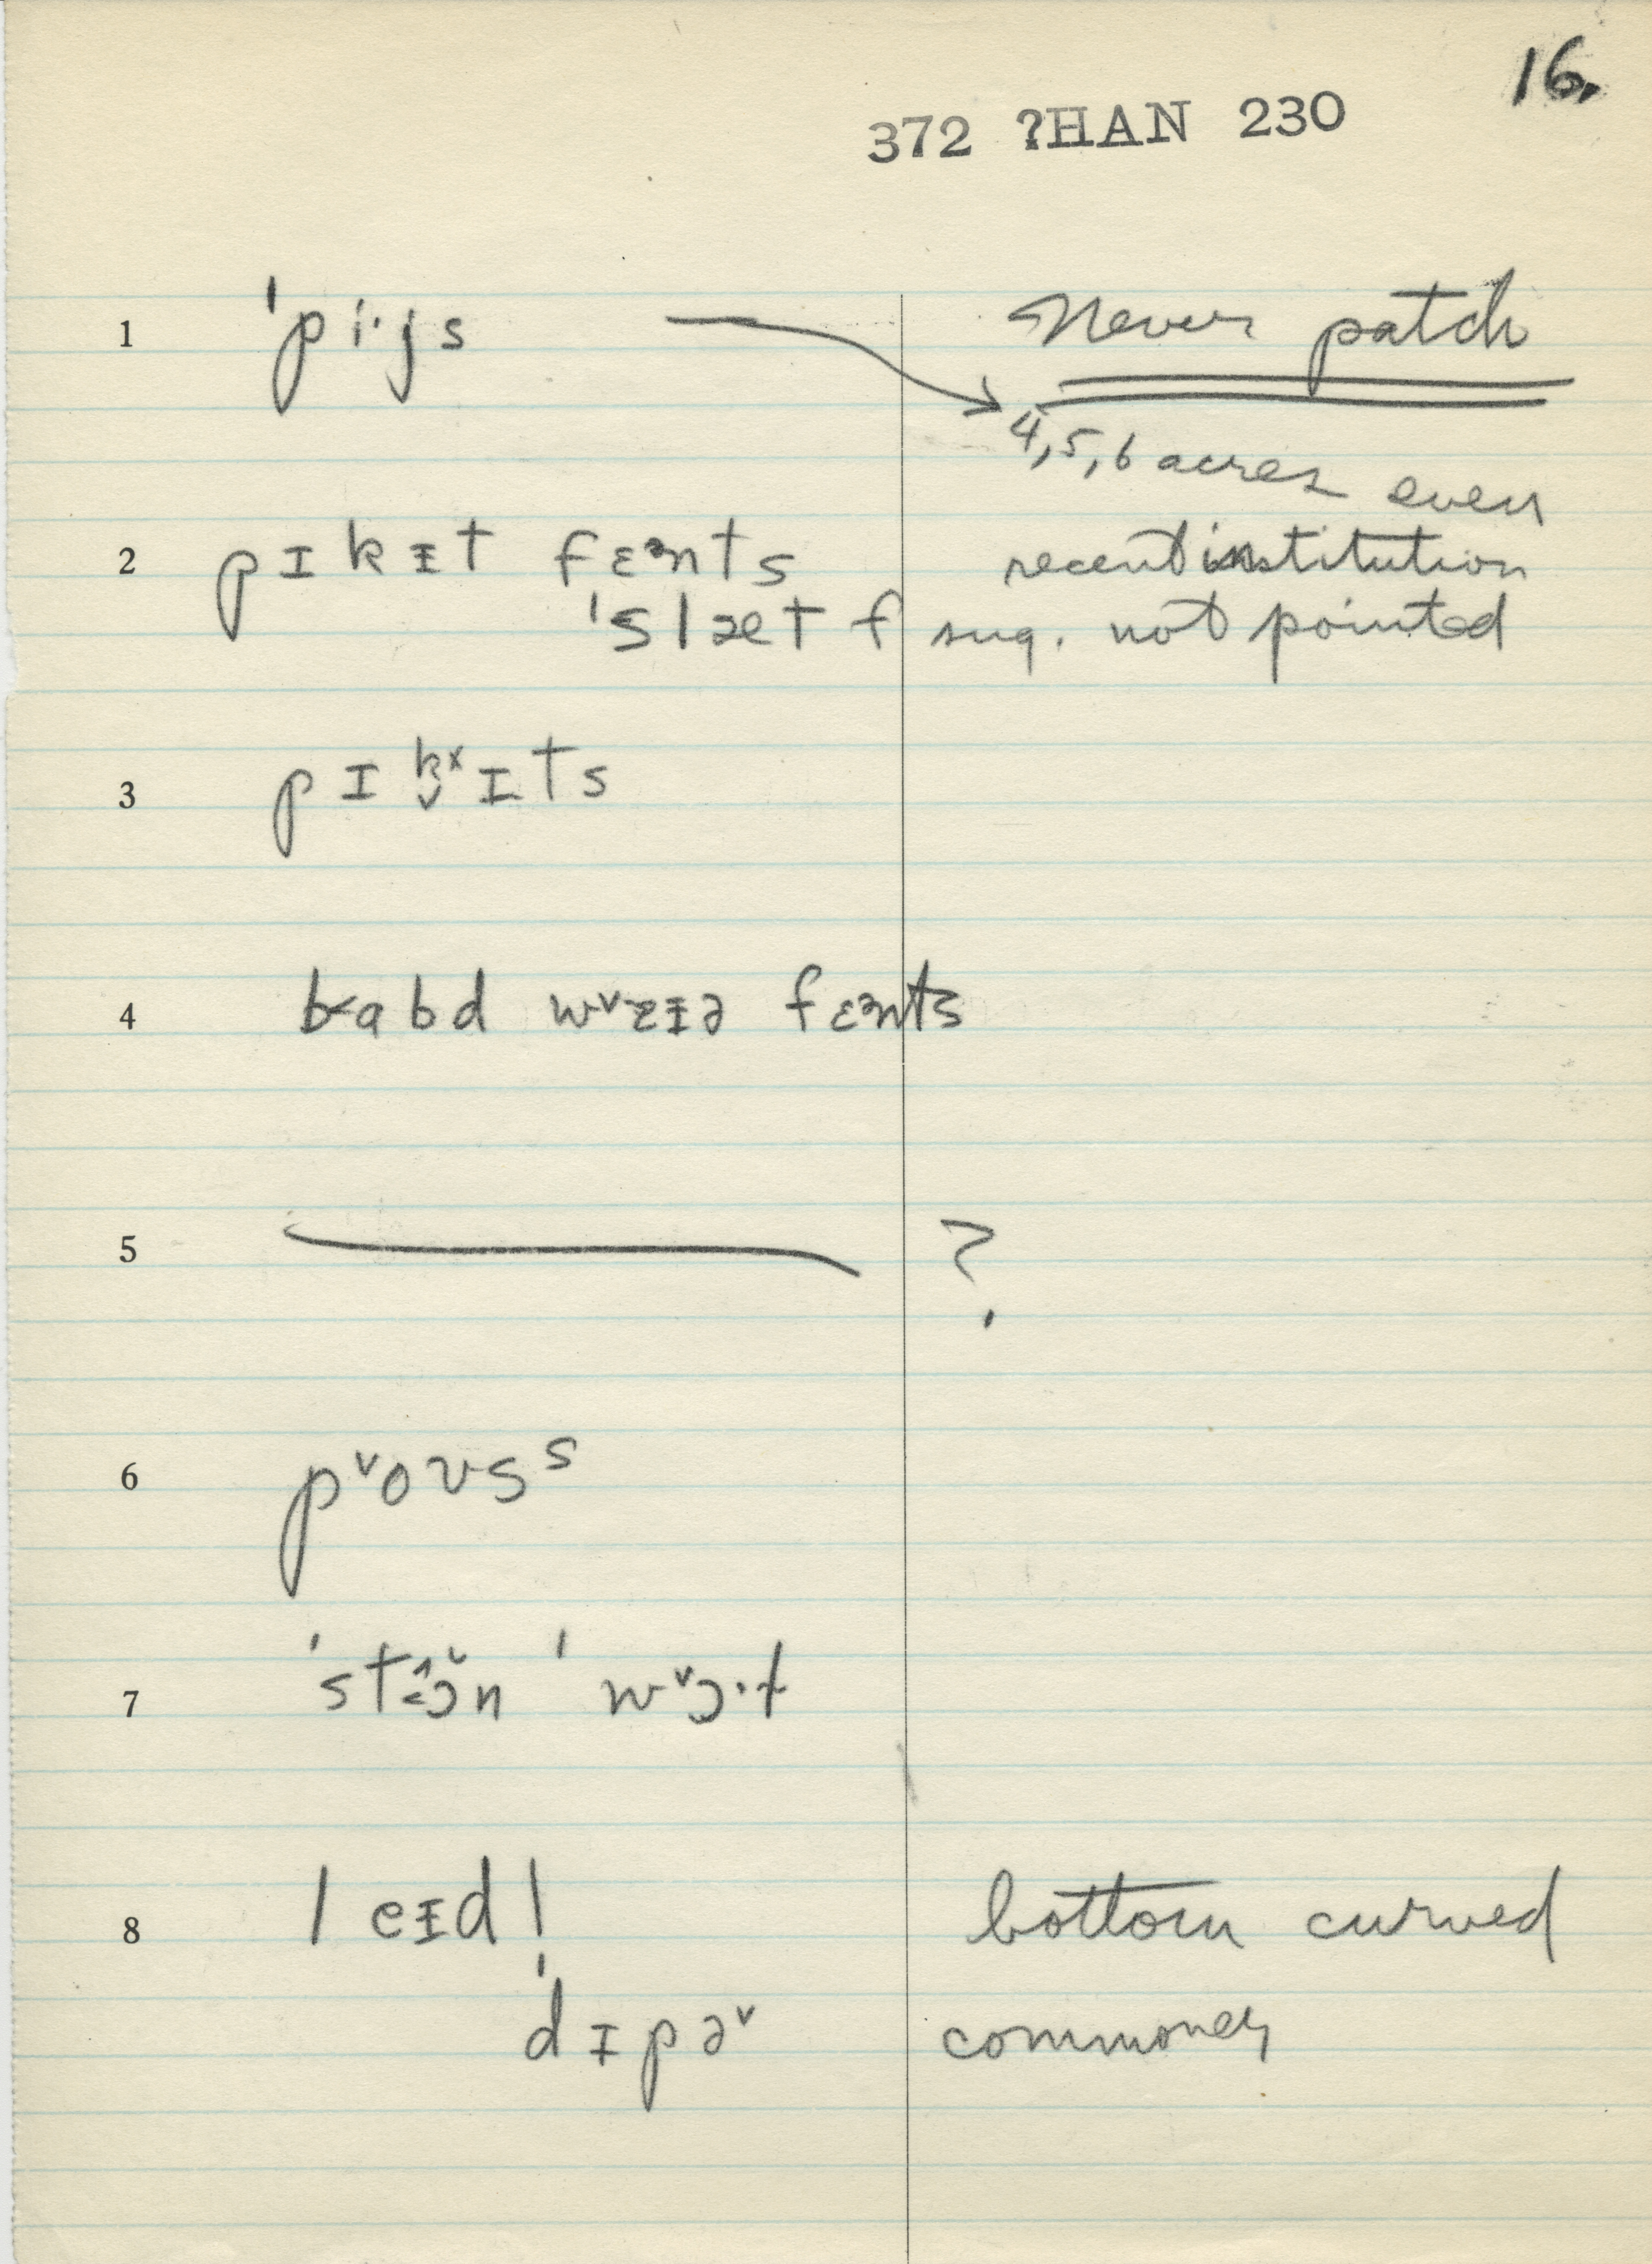 16.
372 ?HAN 230
1 ˈpi·ɟs Never patch
4, 5, 6 acres even
2 pɪkɪt fɛᵊnts recent institution
ˈslæt f sug. not pointed
3 pɪkˣɪts
4 babd wᵛɛɪə fɛᵊnts
5 ?
6 pᵛoʊsˢ
7 ˈst ɔn ˈwᵛɔ·t
8 leɪdl bottom curved
ˈdɪpəᵛ commoner